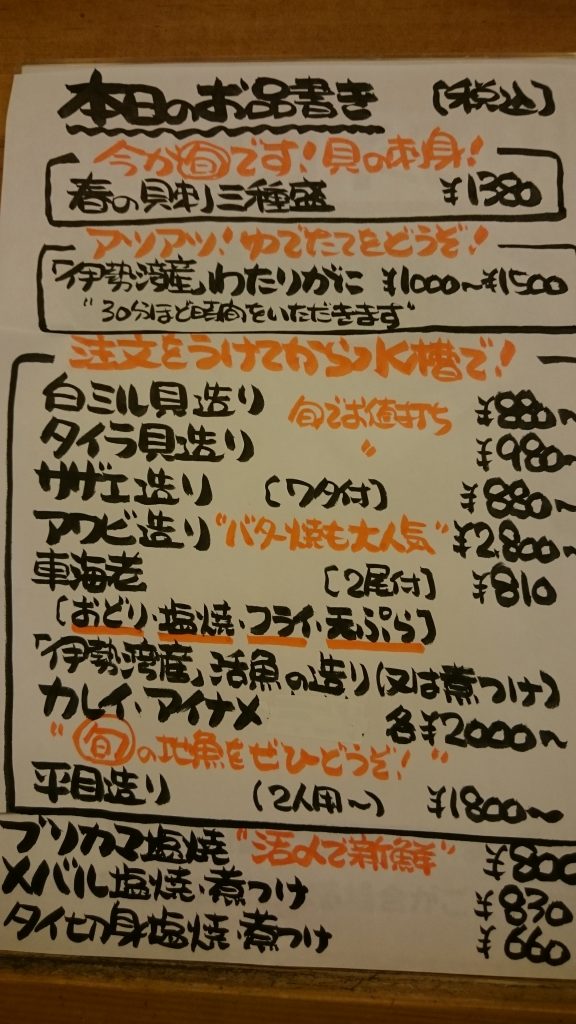 本日のお品書き [税込]
今が旬です!貝の刺身!
春の貝刺三種盛 ¥1380
アツアツ!ゆでたてをどうぞ!
「伊勢湾産」わたりがに ¥1000~¥1500
"30分ほど時間をいただきます"
注文をうけてから水槽で!
白ミル貝造り 旬でお値打ち ¥880~
タイラ貝造り 〃 ¥980~
サザエ造り [ワタ付] ¥880~
アワビ造り "バター焼も大人気" ¥2,800~
車海老 [2尾付] ¥810
[おどり・塩焼・フライ・天ぷら]
「伊勢湾産」活魚の造り(又は煮つけ)
カレイ・アイナメ 各¥2000~
"旬の地魚をぜひどうぞ!"
平目造り (2人用~) ¥1800~
ブリカマ塩焼 "活〆で新鮮" ¥800
メバル塩焼・煮つけ ¥830
タイ切身塩焼・煮つけ ¥660